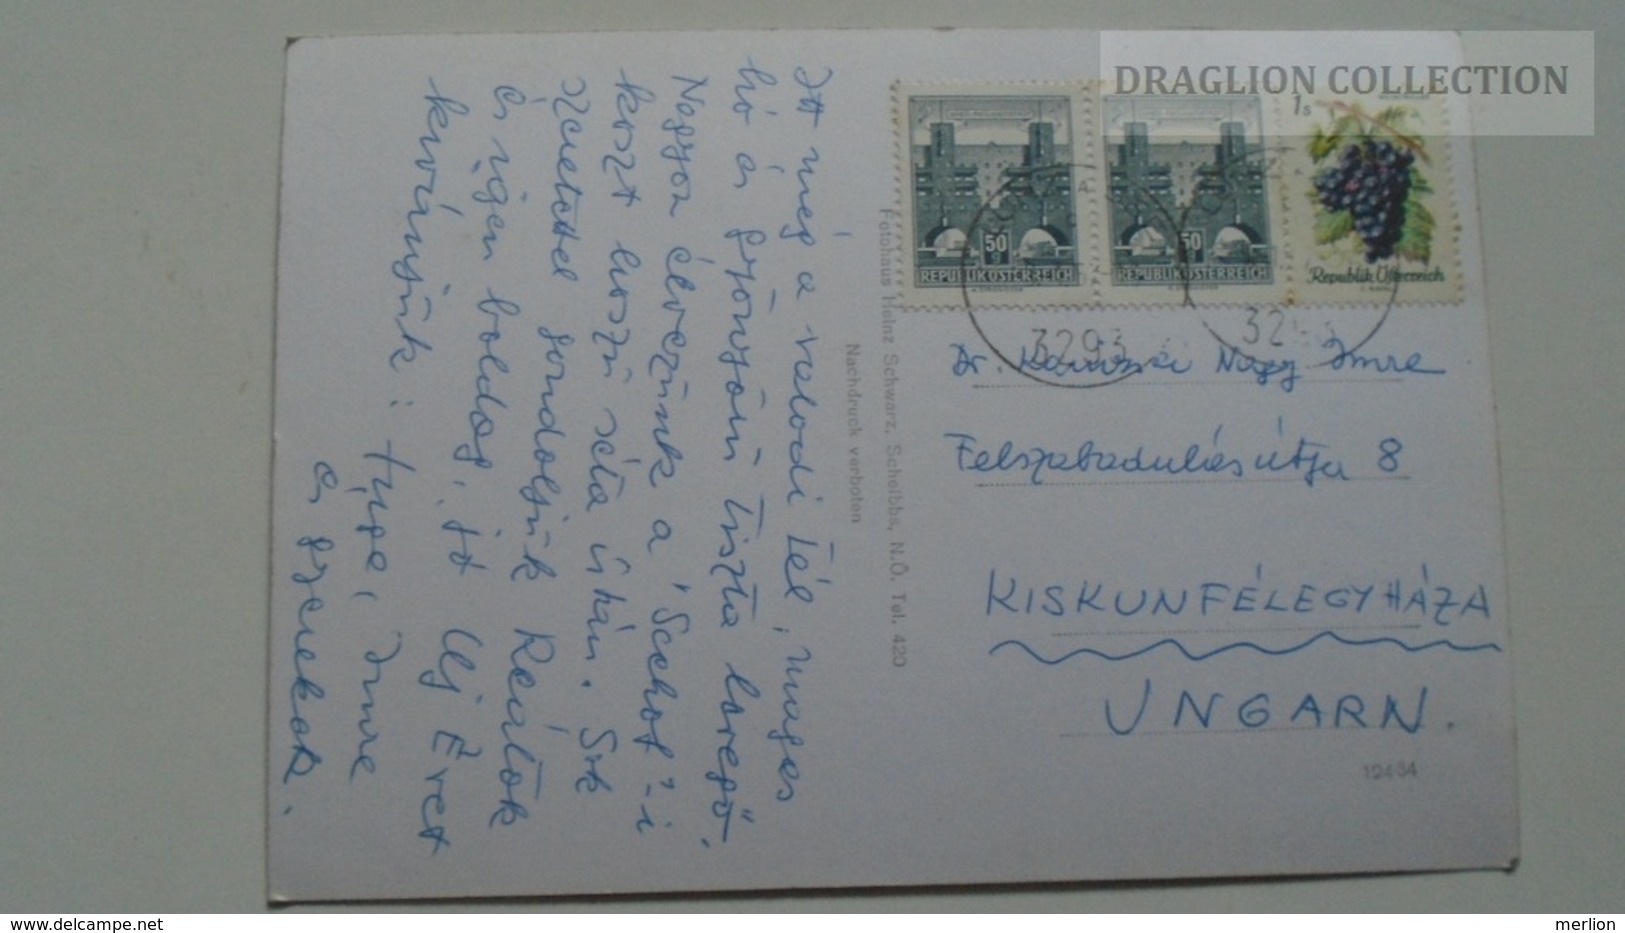 DRAGLION COLLECTION
Itt még a valódi tél, magas
hó és gyönyörű tiszta levegő.
Nagyon élvezzük a "Seehof"-i
koszt hosszú séta után. Sok
szeretettel gondoljunk Reátok
és igen boldog, jó Uj Évet
kivánjunk:
Imre
és gyerekek.
Fotohaus Heinz Schwarz, Scheibbs, N.Ö. Tel. 420
Nachdruck verboten
50 g
REPUBLIK ÖSTERREICH
50
REPUBLIK ÖSTERREICH
1 s
Republik Österreich
3293
Dr. Nagy Imre
Felszabadulás útja 8
KISKUNFÉLEGYHÁZA
UNGARN.
12434
www.delcampe.net
merlion